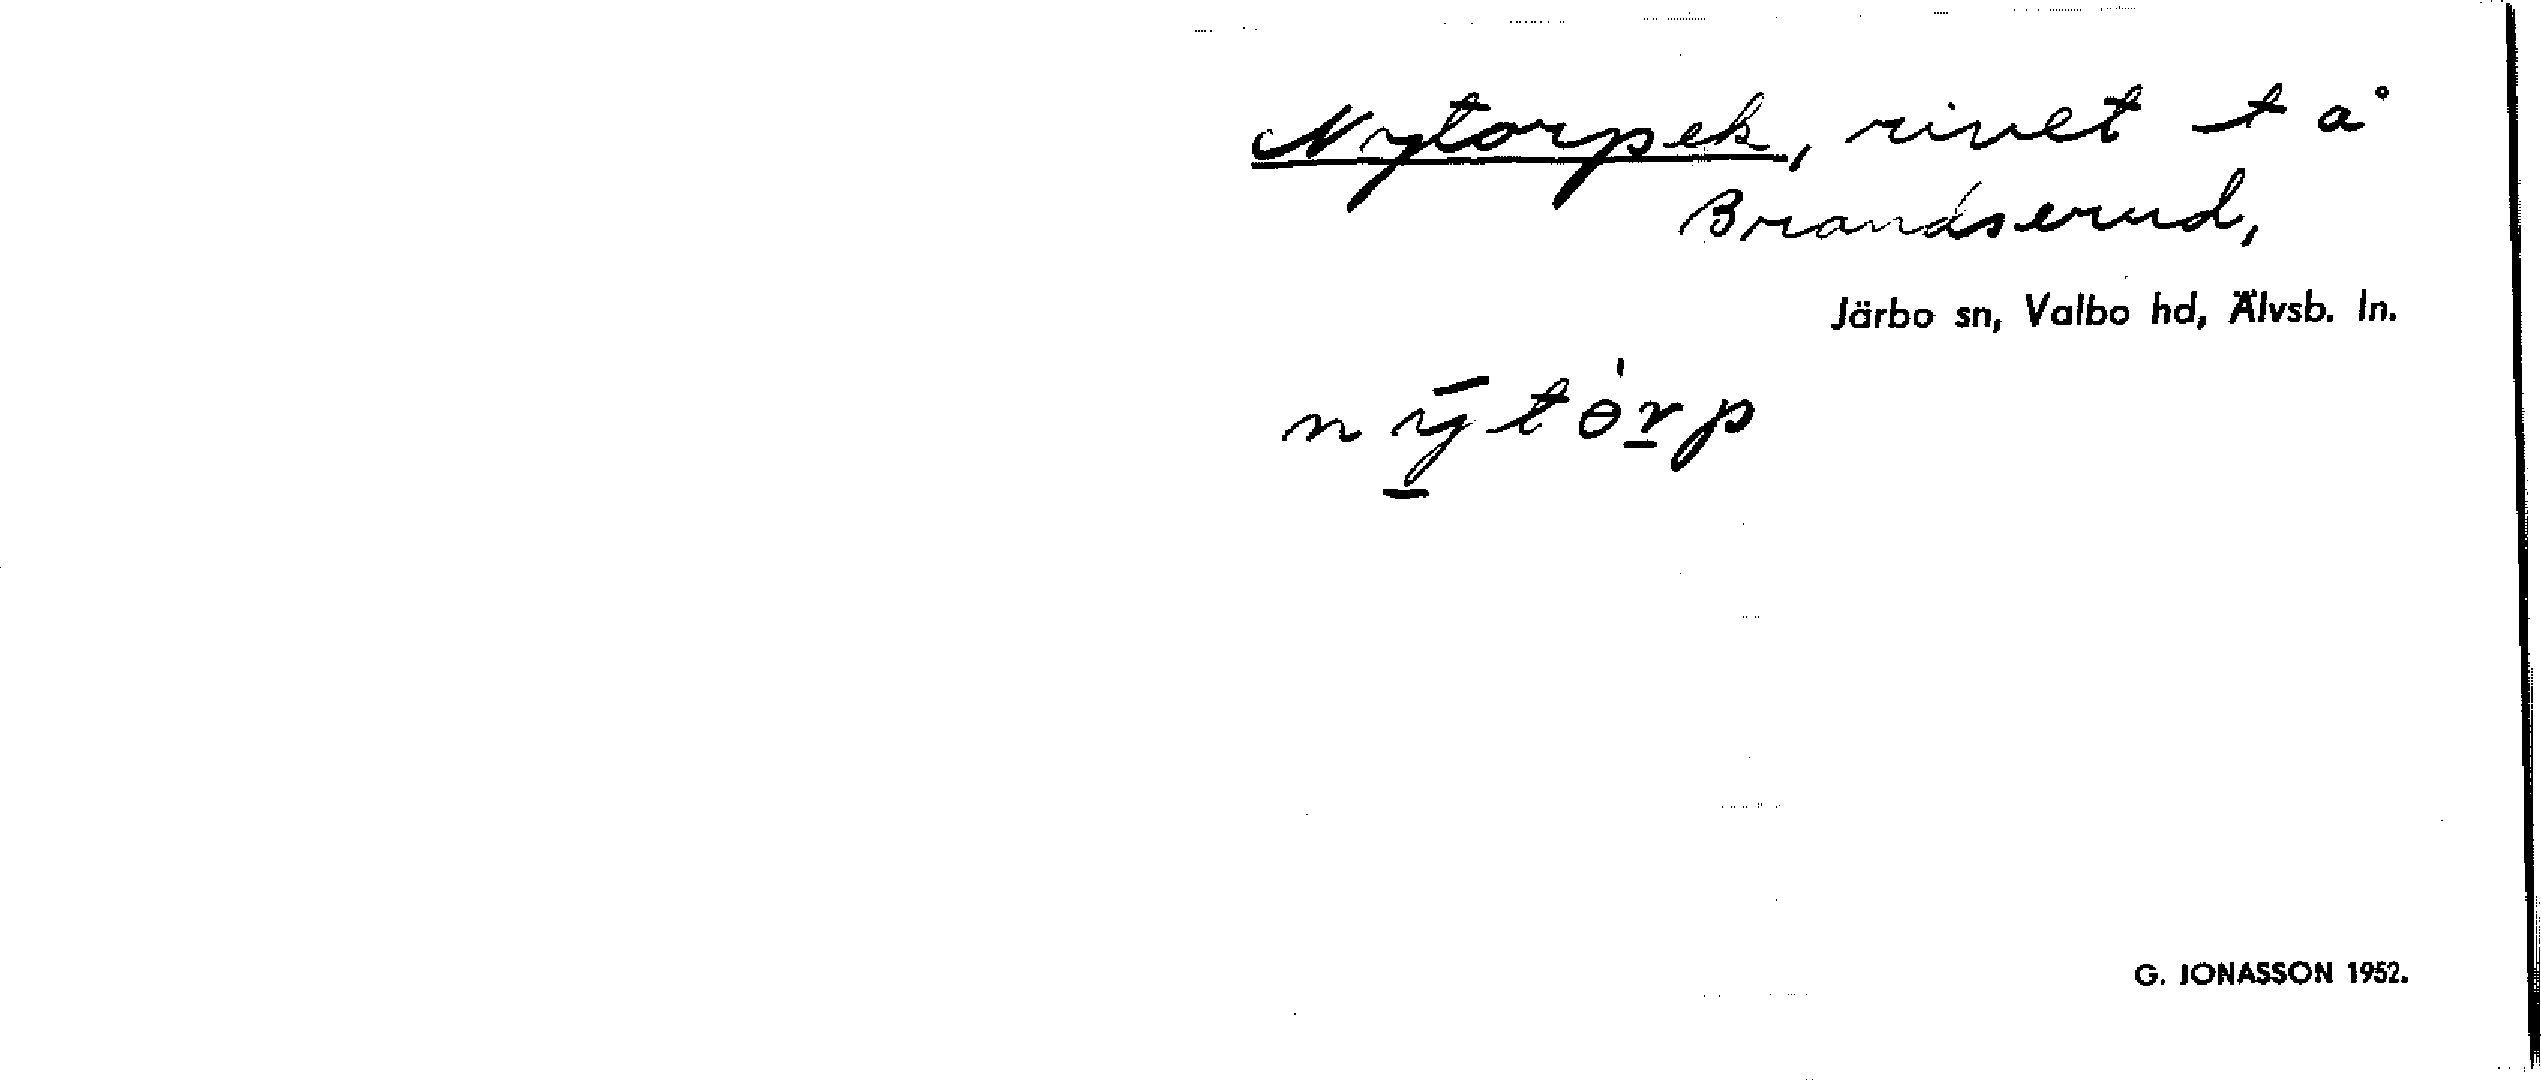 Nytorp ek, rivet t å
Brandserud,
Järbo sn, Valbo hd, Älvsb. ln.
nȳ̱tɵ́r̲p
G. JONASSON 1952.